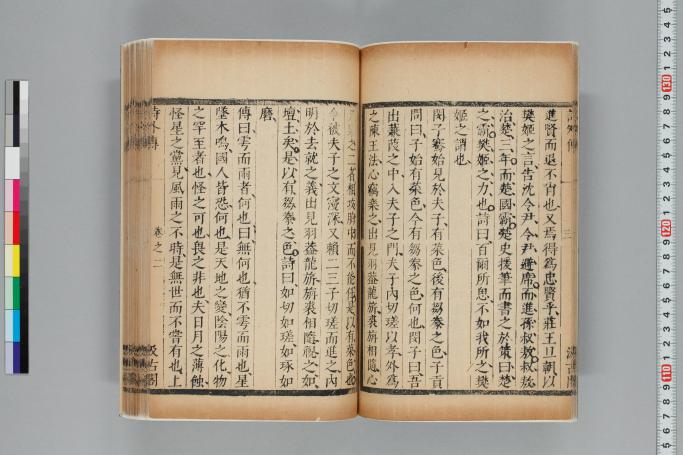 進賢而退不肖也又焉得爲忠賢乎莊王旦朝以
樊姬之言告沈令尹令尹避席而進孫叔敖叔敖
治楚三年而楚國霸楚史援筆而書之於策曰楚
之霸樊姬之力也詩曰百爾所思不如我所之樊
姬之謂也
閔子騫始見於夫子有菜色後有芻豢之色子貢
問曰子始有菜色今有芻豢之色何也閔子曰吾
出蒹葭之中入夫子之門夫子內切瑳以孝外爲
之陳王法心竊樂之出見羽蓋龍旂裘相隨心
之二者相攻胷中而不能任是以有菜色也
今被夫子之文寖深又賴二三子切瑳而進之內
明於去就之義出見羽蓋龍旂旃裘相隨視之如
壇土矣是以有芻豢之色詩曰如切如瑳如琢如
磨
傳曰雩而雨者何也曰無何也猶不雩而雨也星
墜木鳴國人皆恐何也是天地之變陰陽之化物
之罕至者也怪之可也畏之非也夫日月之薄蝕
怪星之黨見風雨之不時是無世而不嘗有也上
詩外傳
卷之二
汲古閣